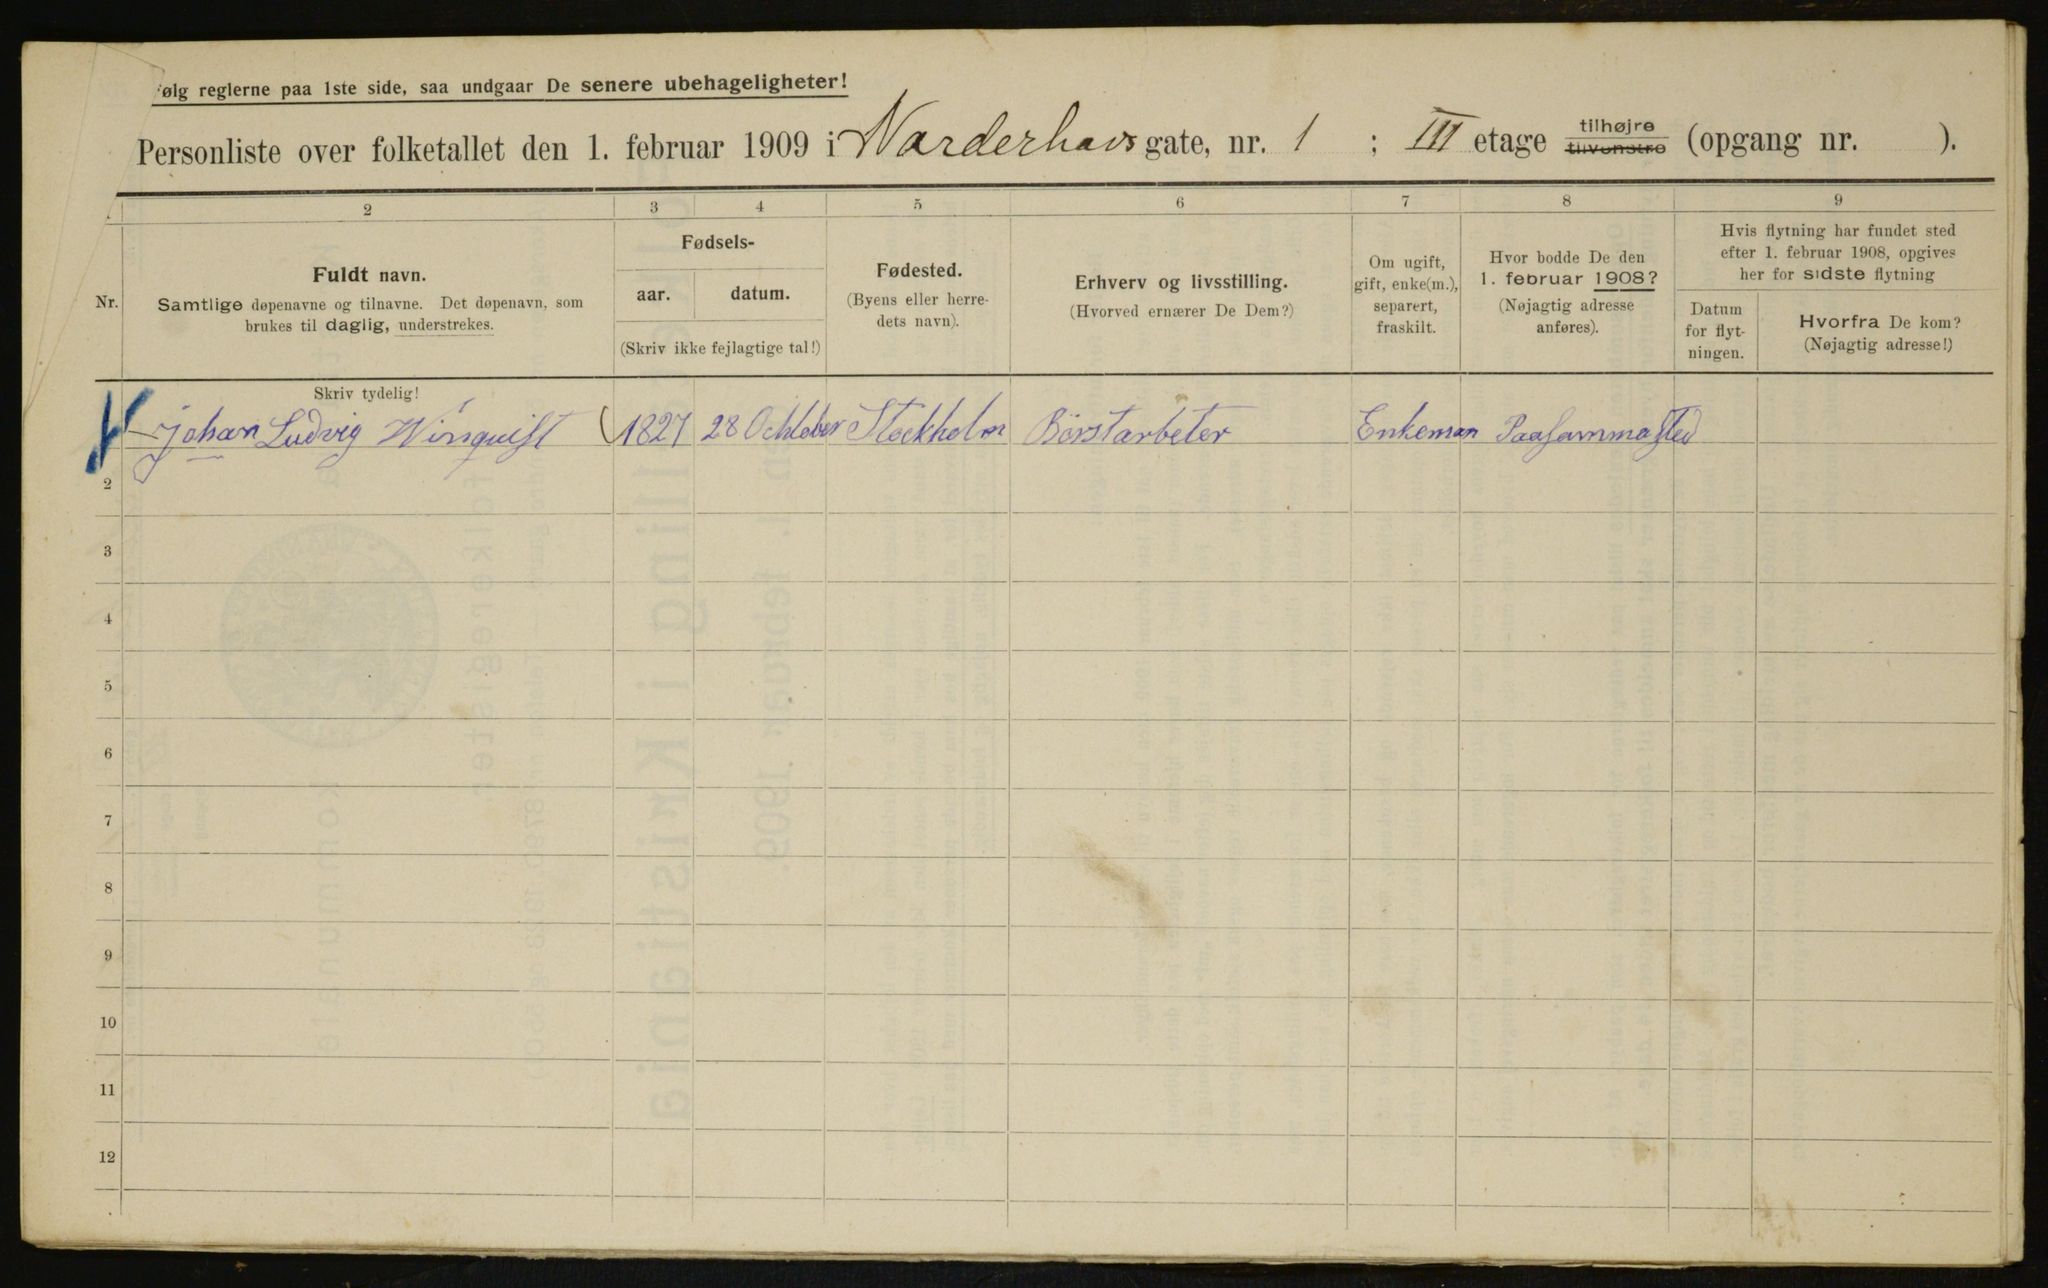 følg reglerne paa 1ste side, saa undgaar De senere ubehageligheter!
Personliste over folketallet den 1. februar 1909 i Narderhavs gate, nr. 1 ; III etage tilhøjre tilvenstre (opgang nr. ).
2 3 4 5 6 7 8 9
Nr.
Fuldt navn.
Samtlige døpenavne og tilnavne. Det døpenavn, som
brukes til daglig, understrekes.
Fødsels-
aar. datum.
(Skriv ikke fejlagtige tal!)
Fødested.
(Byens eller herre-
dets navn).
Erhverv og livsstilling.
(Hvorved ernærer De Dem?)
Om ugift,
gift, enke(m.),
separert,
fraskilt.
Hvor bodde De den
1. februar 1908?
(Nøjagtig adresse
anføres).
Hvis flytning har fundet sted
efter 1. februar 1908, opgives
her for sidste flytning
Datum
for flyt-
ningen.
Hvorfra De kom?
(Nøjagtig adresse!)
Skriv tydelig!
Johan Ludvig Winquist 1827 28 Ochtober Stockholm Börstarbeter Enkeman Paasammasted
2
3
4
5
6
7
8
9
10
11
12